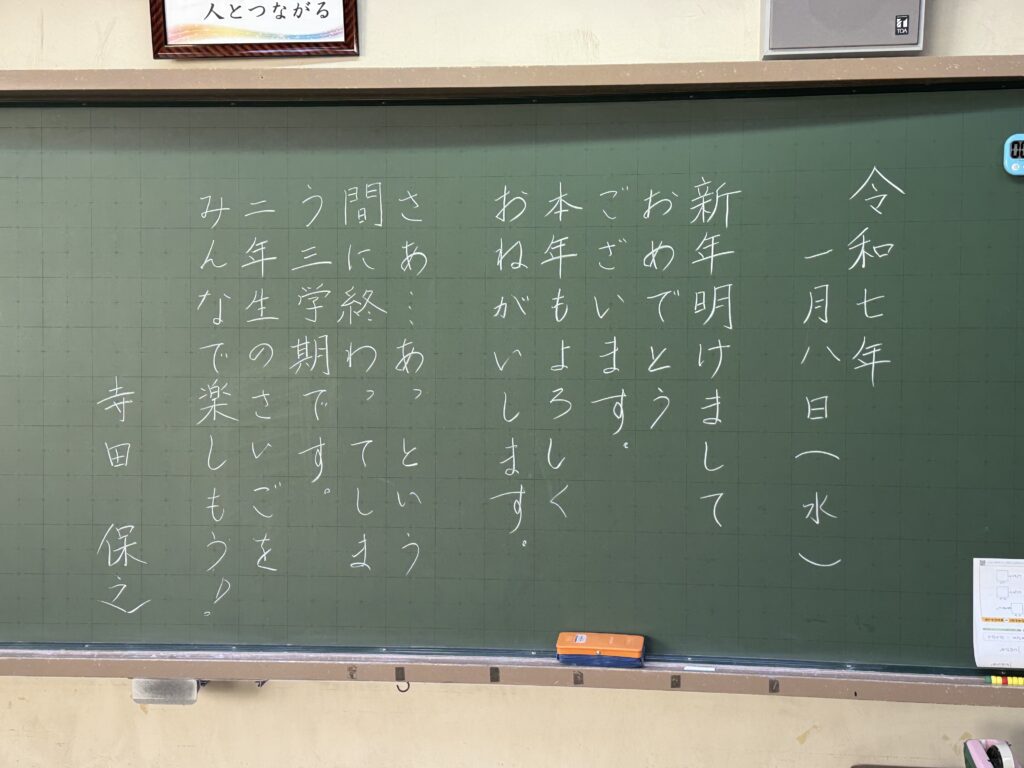 人とつながる
TOA
令和七年
一月八日(水)
新年明けまして
おめでとう
ございます。
本年もよろしく
おねがいします。
さあ…あっという
間に終わってしま
う三学期です。
二年生のさいごを
みんなで楽しもう!
寺田 保之